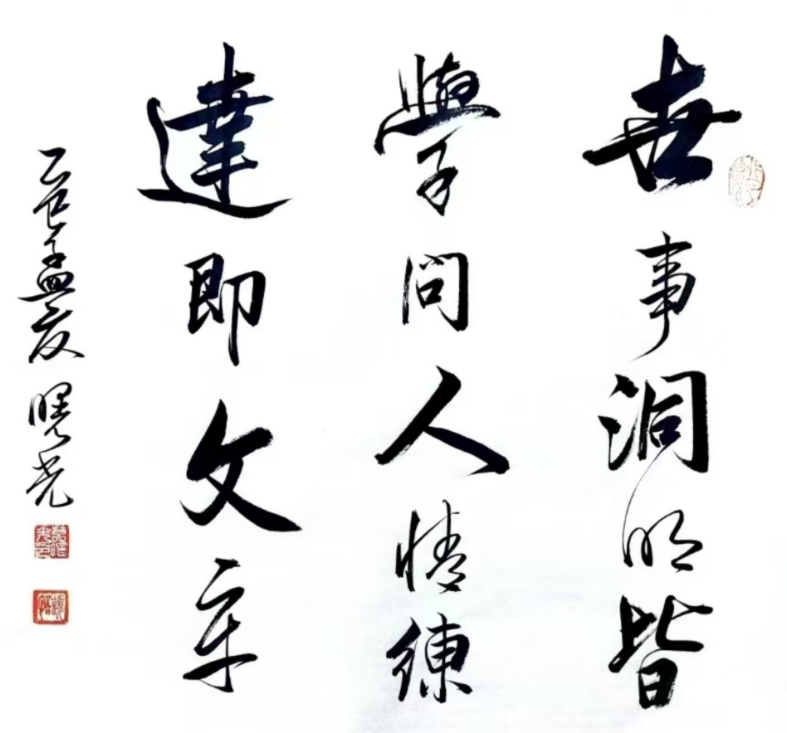 世事洞明皆
學問人情練
達即文章
乙巳孟夏曙光